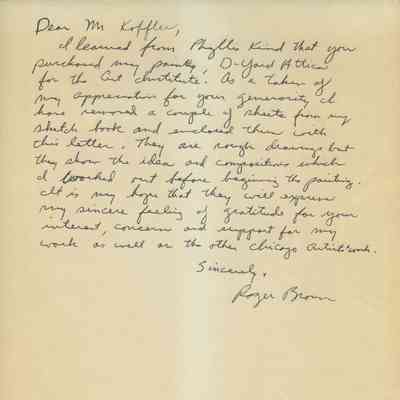 Dear Mr Koffler,
I learned from Phyllis Kind that you
purchased my painting, D-Yard Attica
for the Art Institute. As a token of
my appreciation for your generosity I
have removed a couple of sheets from my
sketch book and enclosed them with
this letter. They are rough drawings but
they show the idea and compositions which
I worked out before beginning the painting.
It is my hope that they will express
my sincere feeling of gratitude for your
interest, concern and support for my
work as well as the other Chicago Artists work.
Sincerely,
Roger Brown